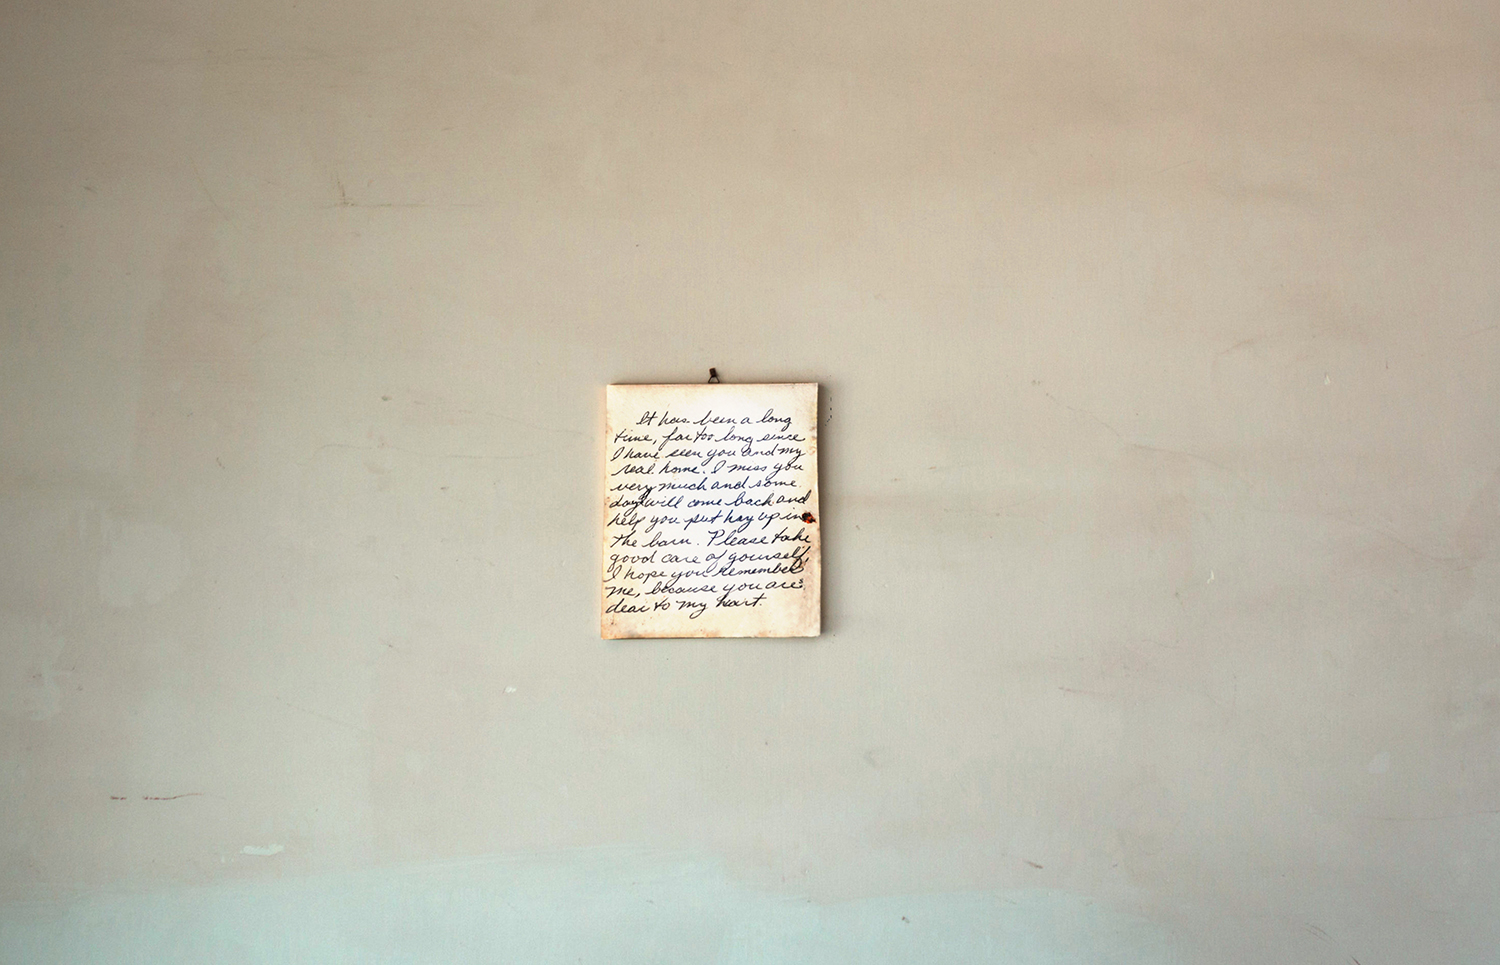 It has been a long
time, far too long since
I have seen you and my
real home. I miss you
very much and some
day will come back and
help you put hay up in
the barn. Please take
good care of yourself,
I hope you remember
me, because you are
dear to my heart.